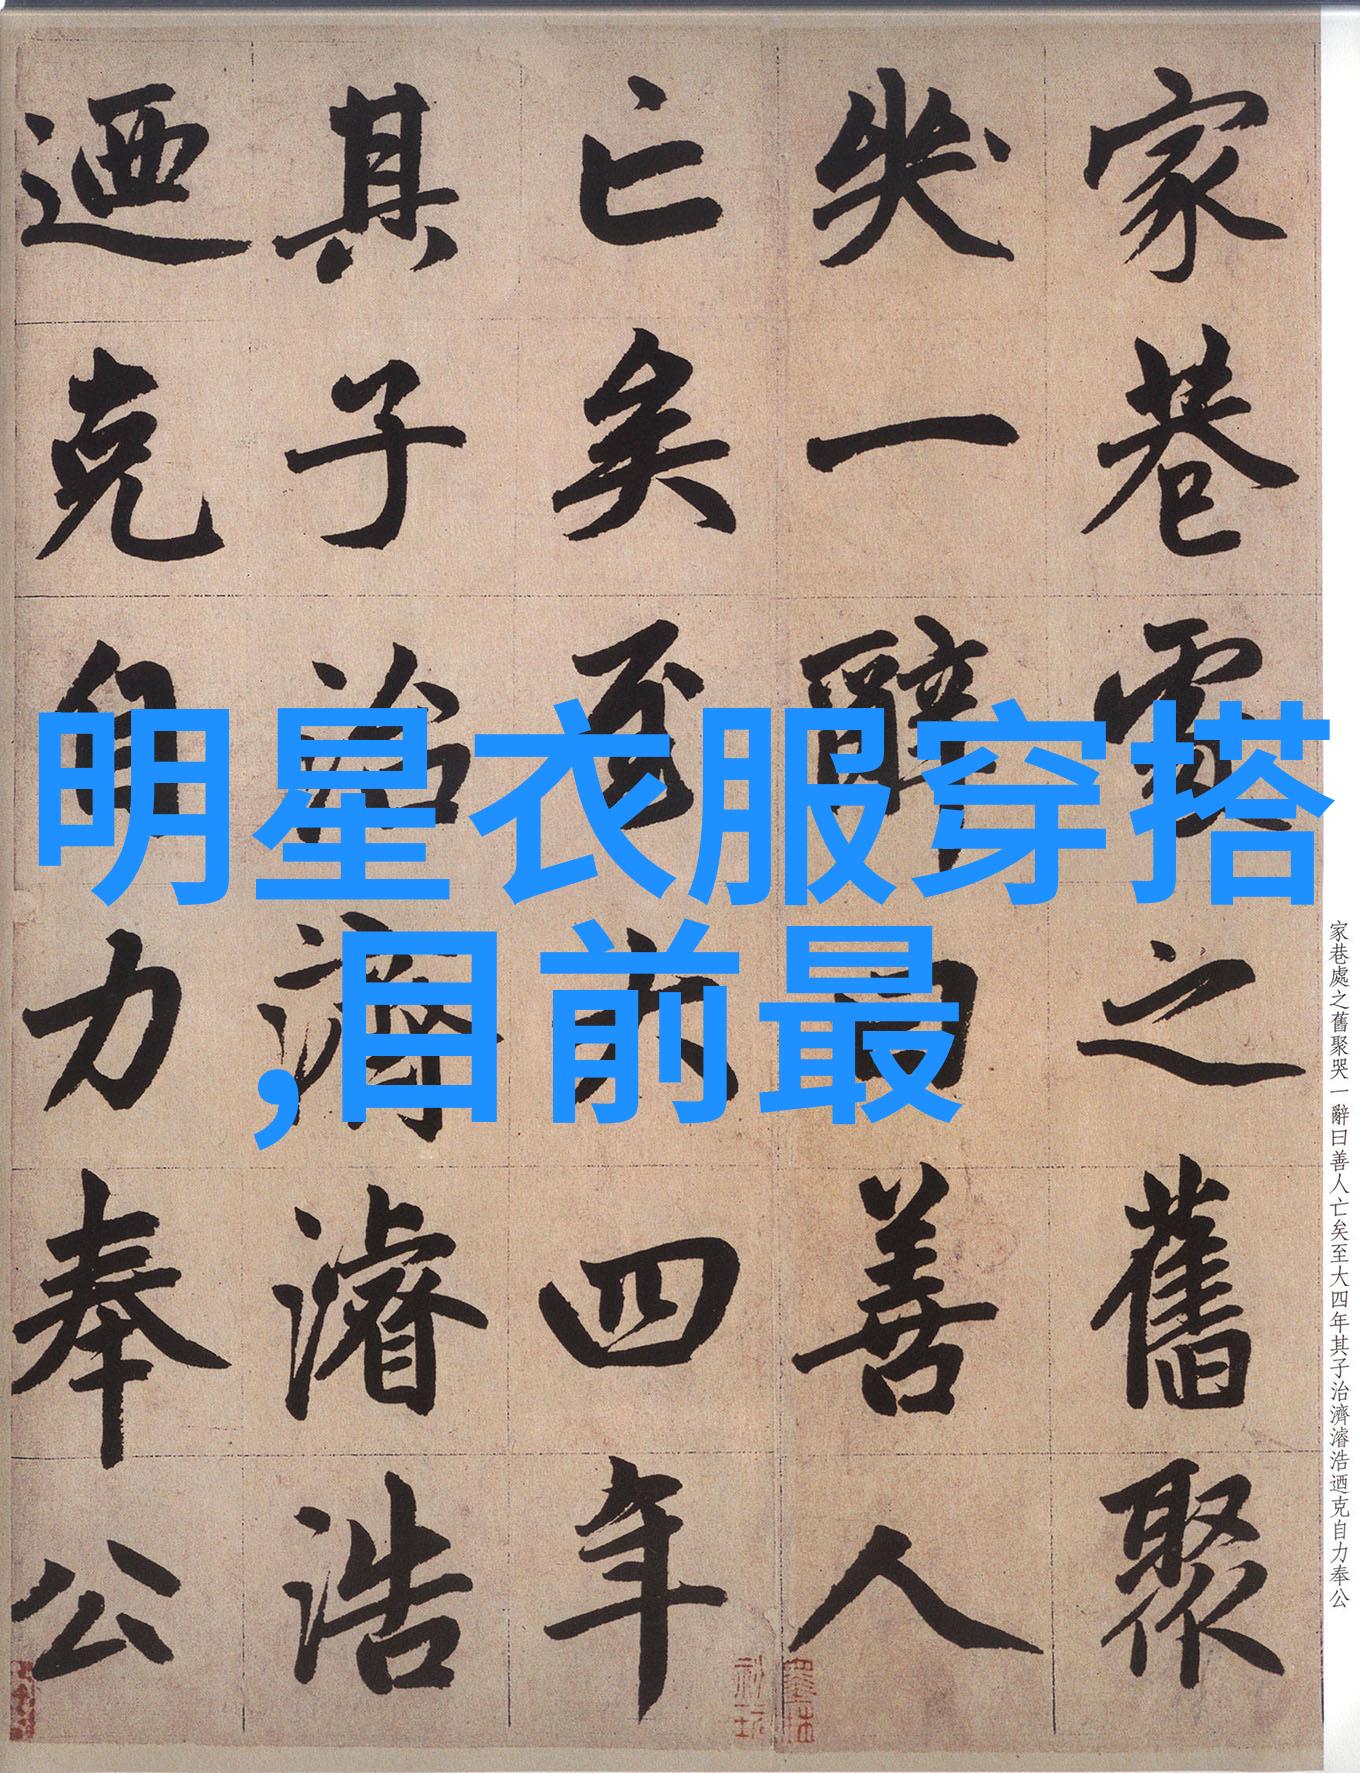 家巷處之舊聚哭一辭曰善人亡矣至大四年其子治濟濬浩迺克自力奉公
家巷處之舊聚
哭一辭曰善人
亡矣至大四年
其子治濟濬浩
迺克自力奉公
明星衣服穿搭
,目前最